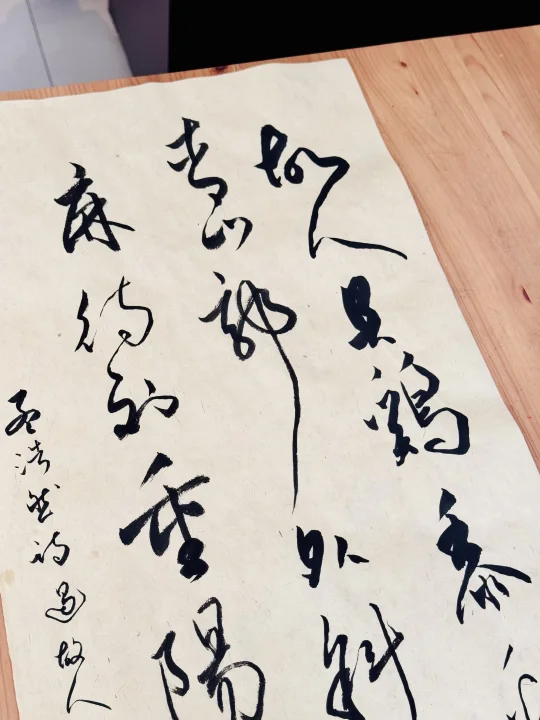 故人具鷄黍
青山郭外斜
麻待到重陽
孟浩然詩過故人